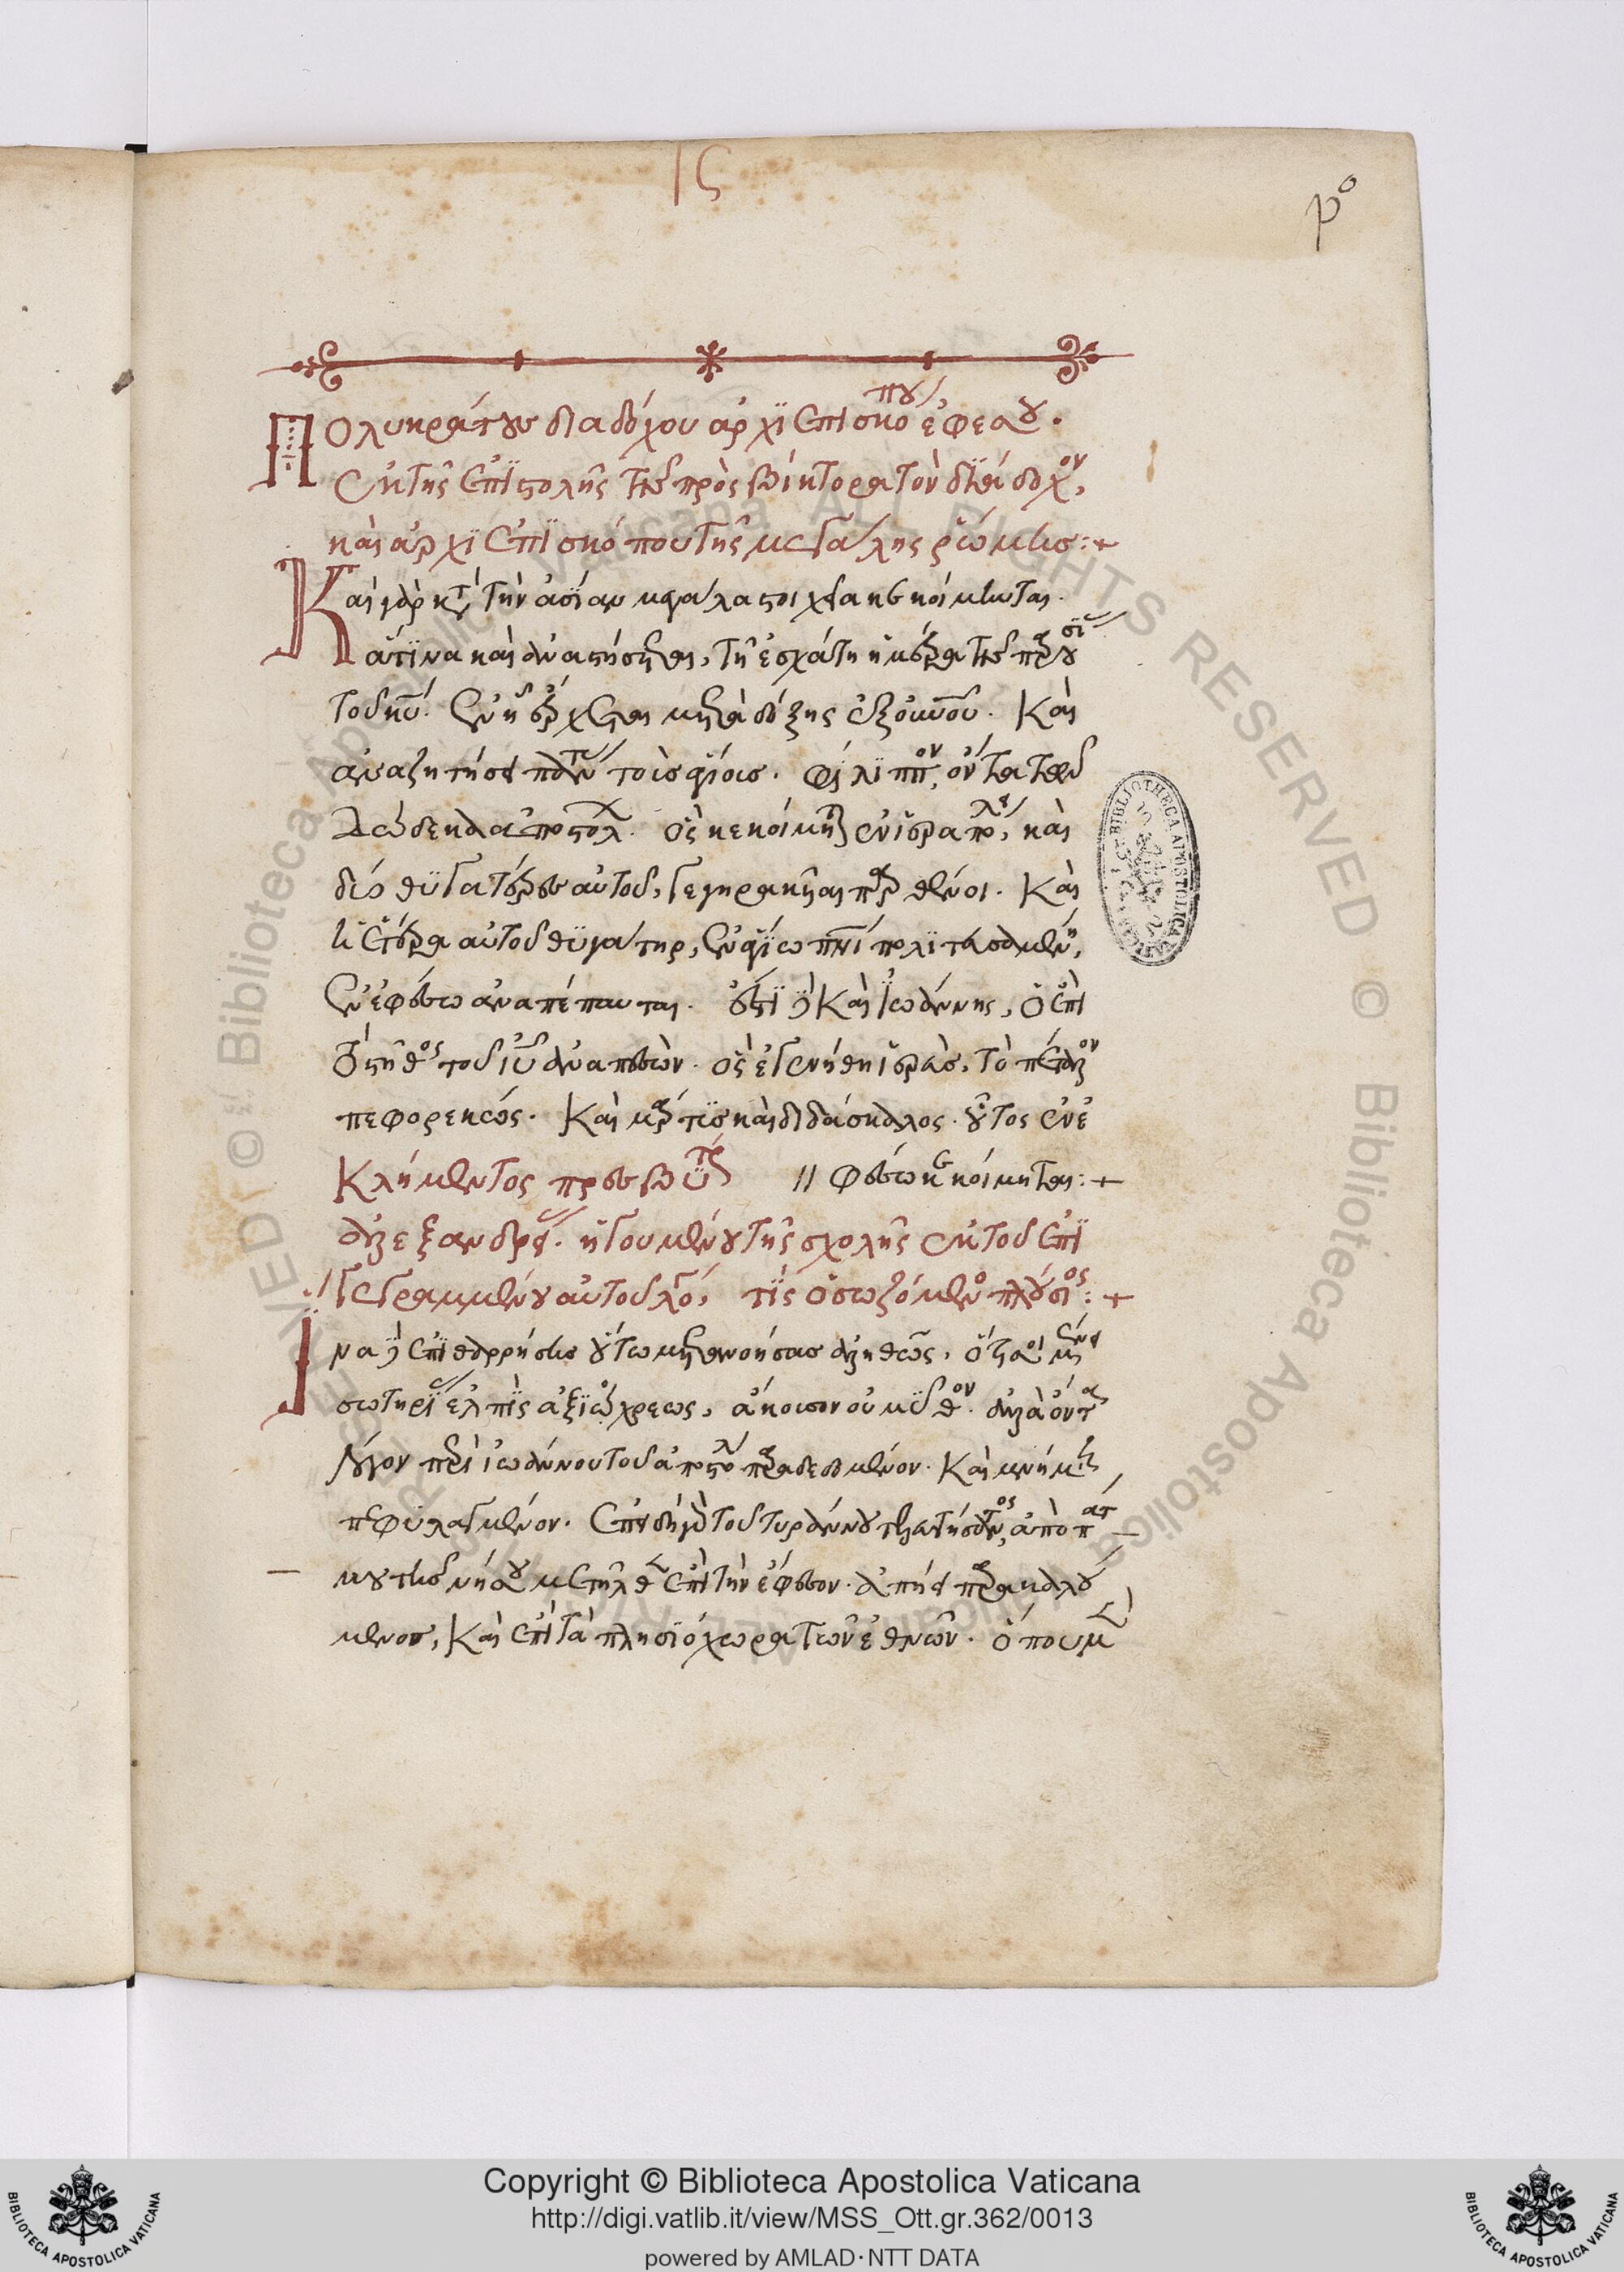 ις
ρο
Πολυκράτους διαδόχου ἀρχιεπισκόπου ἐφέσου.
ἐκ τῆς ἐπιστολῆς τῆς πρὸς βίκτορα τὸν διάδοχον,
καὶ ἀρχιεπισκόπου τῆς μεγάλης ῥώμης:+
Καὶ γὰρ κατὰ τὴν ἀσίαν μεγάλα στοιχεῖα κεκοίμηνται.
ἅτινα καὶ ἀναστήσεται, τῇ ἐσχάτῃ ἡμέρᾳ τῆς παρουσίας
τοῦ κυ. ἐν ᾗ ἔρχεται μετὰ δόξης ἐξ οὐνοῦ. Καὶ
ἀναζητήσει πάντας τοὺς ἁγίους. φίλιππον, ὃν τα τῶν
δώδεκα ἀποστόλων. ὃς κεκοίμηται ἐν ἱεραπόλει, καὶ
δύο θυγατέρες αὐτοῦ, γεγηρακῦαι παρθένοι. Καὶ
ἡ ἑτέρα αὐτοῦ θυγάτηρ, ἐν ἁγίω πνι πολιτευσαμένη,
ἐν ἐφέσω ἀναπέπαυται. ἔτι δὲ Καὶ ἰωάννης, ὁ ἐπὶ
τὸ στῆθος τοῦ ιυ ἀναπεσὼν. ὃς ἐγενήθη ἱερεὺς, τὸ πέταλον
πεφορεκώς. Καὶ μάρτυς καὶ διδάσκαλος. οὗτος ἐν ἐ
// φέσω κεκοίμηται:+
Κλήμεντος πρεσβυτέρου
ἀλεξανδρείας. ἡγουμένου τῆς σχολῆς ἐκ τοῦ ἐπι
γεγραμμένου αὐτοῦ λόγου, τίς ὁ σωζόμενος πλούσιος:+
Ἵνα δὲ ἐπιθαρρήσης οὕτω μετανοήσας ἀληθῶς, ὅτι σοὶ μένει
σωτηρίας ἐλπὶς ἀξιόχρεως, ἄκουσον οὐ μῦθον. ἀλλὰ ὄντα
λόγον περὶ ἰωάννου τοῦ ἀποστόλου παραδεδομένον. Καὶ μνήμῃ
πεφυλαγμένον. ἐπειδὴ γὰρ τοῦ τυράννου τελευτήσαντος, ἀπὸ πάτ
μου τῆς νήσου μετῆλθεν ἐπὶ τὴν ἔφεσον. ἀπήει παρακαλού
μενος, Καὶ ἐπὶ τὰ πλησιόχωρα τῶν ἐθνῶν. ὅπου μὲν
© Biblioteca Apostolica Vaticana ALL RIGHTS RESERVED © Biblioteca Apostolica Vaticana ALL RIGHTS RESERVED
BIBLIOTHECA APOSTOLICA VATICANA
Copyright © Biblioteca Apostolica Vaticana
http://digi.vatlib.it/view/MSS_Ott.gr.362/0013
powered by AMLAD·NTT DATA
BIBLIOTECA APOSTOLICA VATICANA
BIBLIOTECA APOSTOLICA VATICANA